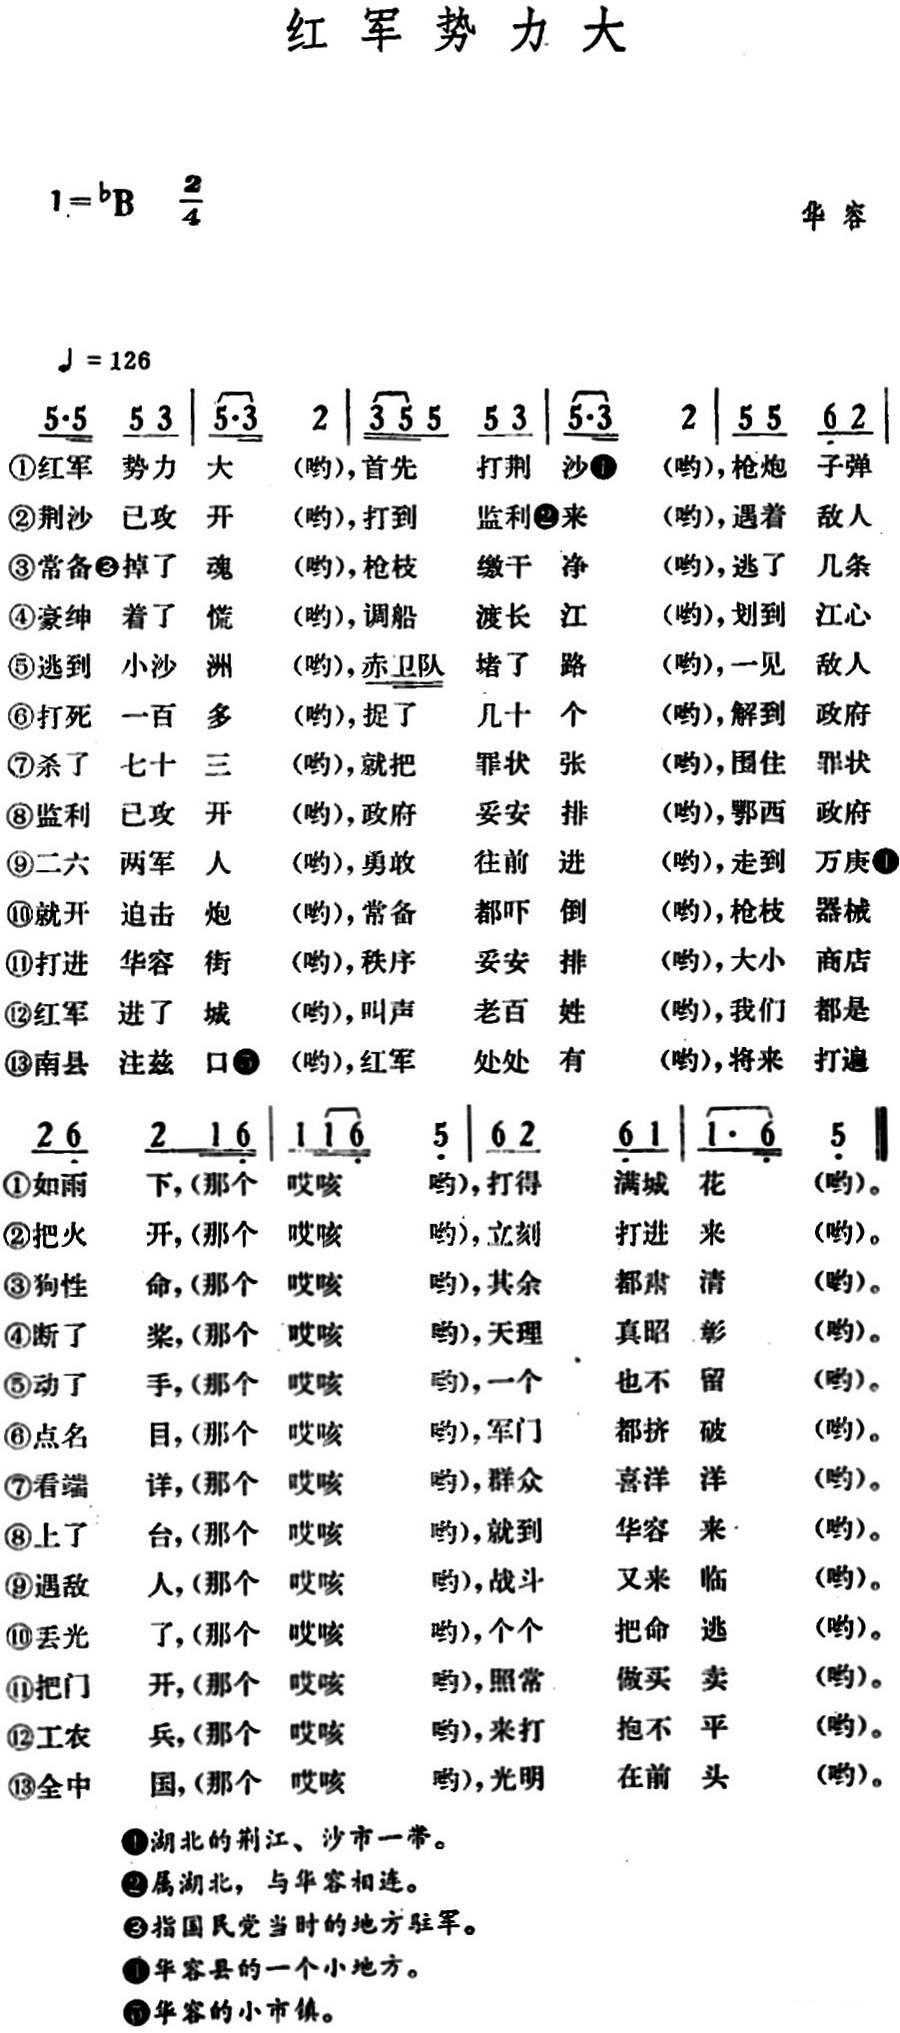 红军势力大
1=♭B 2/4
华容
♩=126
5·5 5 3 | 5·3 2 | 3 5 5 5 3 | 5·3 2 | 5 5 6̣ 2 |
①红军 势力 大 (哟),首先 打荆 沙❶ (哟),枪炮 子弹
②荆沙 已攻 开 (哟),打到 监利❷来 (哟),遇着 敌人
③常备❸掉了 魂 (哟),枪枝 缴干 净 (哟),逃了 几条
④豪绅 着了 慌 (哟),调船 渡长 江 (哟),划到 江心
⑤逃到 小沙 洲 (哟),赤卫队 堵了 路 (哟),一见 敌人
⑥打死 一百 多 (哟),捉了 几十 个 (哟),解到 政府
⑦杀了 七十 三 (哟),就把 罪状 张 (哟),围住 罪状
⑧监利 已攻 开 (哟),政府 妥安 排 (哟),鄂西 政府
⑨二六 两军 人 (哟),勇敢 往前 进 (哟),走到 万庚❹
⑩就开 迫击 炮 (哟),常备 都吓 倒 (哟),枪枝 器械
⑪打进 华容 街 (哟),秩序 妥安 排 (哟),大小 商店
⑫红军 进了 城 (哟),叫声 老百 姓 (哟),我们 都是
⑬南县 注兹 口❺ (哟),红军 处处 有 (哟),将来 打遍
2 6̣ 2 1 6̣ | 1 1 6̣ 5̣ | 6 2 6̣ 1 | 1· 6̣ 5̣ ‖
①如雨 下,(那个 哎咳 哟),打得 满城 花 (哟)。
②把火 开,(那个 哎咳 哟),立刻 打进 来 (哟)。
③狗性 命,(那个 哎咳 哟),其余 都肃 清 (哟)。
④断了 桨,(那个 哎咳 哟),天理 真昭 彰 (哟)。
⑤动了 手,(那个 哎咳 哟),一个 也不 留 (哟)。
⑥点名 目,(那个 哎咳 哟),军门 都挤 破 (哟)。
⑦看端 详,(那个 哎咳 哟),群众 喜洋 洋 (哟)。
⑧上了 台,(那个 哎咳 哟),就到 华容 来 (哟)。
⑨遇敌 人,(那个 哎咳 哟),战斗 又来 临 (哟)。
⑩丢光 了,(那个 哎咳 哟),个个 把命 逃 (哟)。
⑪把门 开,(那个 哎咳 哟),照常 做买 卖 (哟)。
⑫工农 兵,(那个 哎咳 哟),来打 抱不 平 (哟)。
⑬全中 国,(那个 哎咳 哟),光明 在前 头 (哟)。
❶湖北的荆江、沙市一带。
❷属湖北，与华容相连。
❸指国民党当时的地方驻军。
❹华容县的一个小地方。
❺华容的小市镇。